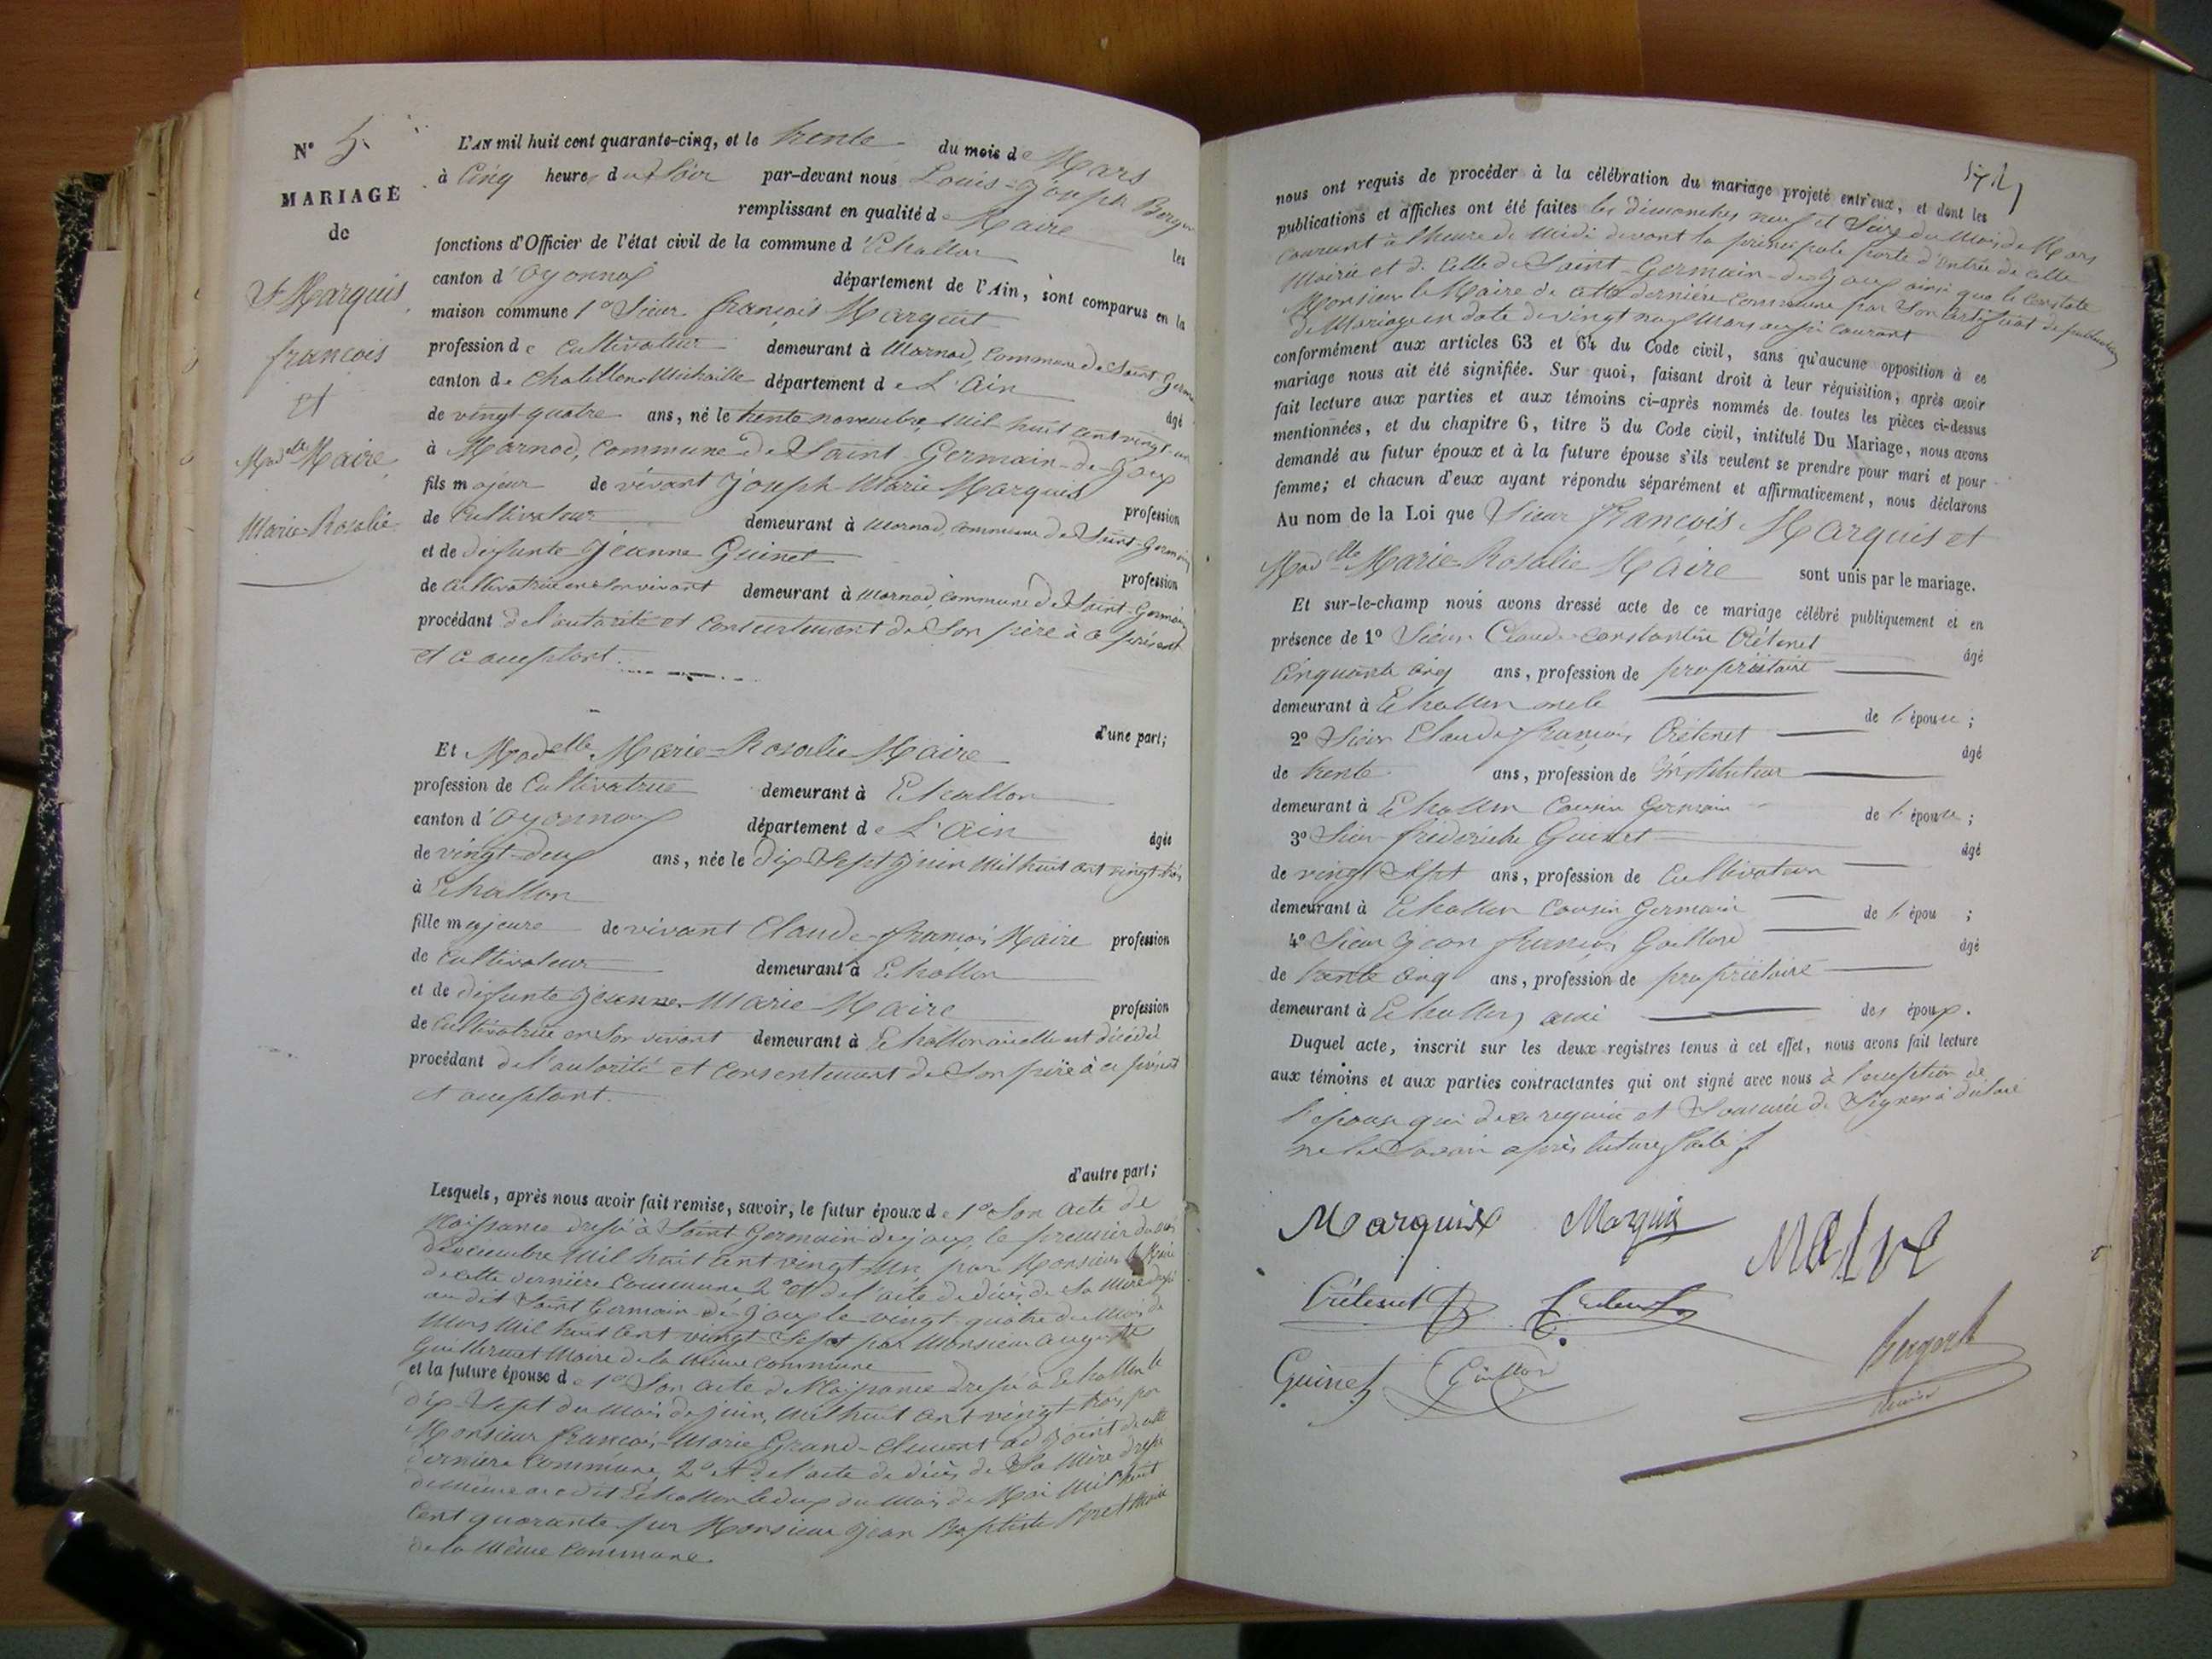 N° 5.
MARIAGE
de
S. Marquis
françois
et
Mad.elle Maire
Marie-Rosalie
L'AN mil huit cent quarante-cinq, et le trente du mois de Mars
à Cinq heures du Soir par-devant nous Louis-Joseph
remplissant en qualité de Maire les
fonctions d'Officier de l'état civil de la commune d'Echallon
canton d'Oyonnax département de l'Ain, sont comparus en la
maison commune 1° Sieur françois Marquis
profession de Cultivateur demeurant à Marnod, Commune de Saint-Germ
canton de Chatillon Michaille département de L'Ain âgé
de vingt-quatre ans, né le trente novembre Mil huit cent vingt-un
à Marnod, Commune de Saint-Germain-de-Joux
fils majeur de vivant Joseph-Marie Marquis profession
de Cultivateur demeurant à Marnod, Commune de Saint-Germain
et de défunte Jeanne Guinet profession
de Cultivatrice en son vivant demeurant à Marnod, Commune de Saint-Germain
procédant de l'autorité et Consentement de Son père à ce présent
et acceptant.
d'une part;
Et Mad.elle Marie-Rosalie Maire
profession de Cultivatrice demeurant à Echallon
canton d'Oyonnax département de L'Ain âgée
de vingt-deux ans, née le dix Sept Juin Mil huit cent vingt-trois
à Echallon
fille majeure de vivant Claude-françois Maire profession
de Cultivateur demeurant à Echallon
et de défunte Jeanne-Marie Maire profession
de Cultivatrice en Son vivant demeurant à Echallon où elle est décédée
procédant de l'autorité et Consentement de Son père à ce présent
et acceptant.
d'autre part;
Lesquels, après nous avoir fait remise, savoir, le futur époux de 1° Son acte de
Naissance dressé à Saint Germain-de-joux, le premier du mois
décembre Mil huit cent vingt un, par Monsieur le Maire
de cette dernière Commune 2° et de l'acte de décès de Sa Mère dressé
au dit Saint Germain-de-Joux le vingt-quatre du Mois de
Mars Mil huit Cent vingt Sept par Monsieur auguste
Guillermet Maire de la Même Commune
et la future épouse de 1° Son acte de Naissance dressé à Echallon le
dix-Sept du Mois de juin, Mil huit cent vingt-trois, par
Monsieur françois-Marie Grand-Clément adjoint de cette
dernière Commune, 2° et de l'acte de décès de Sa Mère dressé
de même au dit Echallon le deux du Mois de Mai Mil huit
Cent quarante par Monsieur Jean Baptiste Maire
de la Même Commune.
nous ont requis de procéder à la célébration du mariage projeté entr'eux, et dont les
publications et affiches ont été faites les dimanches neuf et Seize du Mois de Mars
Courant à l'heure de Midi devant la principale porte d'Entrée de cette
Mairie et de Celle de Saint-Germain-de-Joux ainsi que le Constate
Monsieur le Maire de cette dernière Commune par Son Certificat de publication
de Mariage en date de vingt neuf Mars aussi Courant
conformément aux articles 63 et 64 du Code civil, sans qu'aucune opposition à ce
mariage nous ait été signifiée. Sur quoi, faisant droit à leur réquisition, après avoir
fait lecture aux parties et aux témoins ci-après nommés de toutes les pièces ci-dessus
mentionnées, et du chapitre 6, titre 5 du Code civil, intitulé Du Mariage, nous avons
demandé au futur époux et à la future épouse s'ils veulent se prendre pour mari et pour
femme; et chacun d'eux ayant répondu séparément et affirmativement, nous déclarons
Au nom de la Loi que Sieur françois Marquis et
Mad.elle Marie-Rosalie Maire sont unis par le mariage.
Et sur-le-champ nous avons dressé acte de ce mariage célébré publiquement et en
présence de 1° Sieur Claude-Constantin Crétenet âgé
Cinquante Cinq ans, profession de propriétaire
demeurant à Echallon oncle de l'épouse;
2° Sieur Claude françois Crétenet âgé
de trente ans, profession de Instituteur
demeurant à Echallon Cousin Germain de l'épouse;
3° Sieur frédérick Guinet âgé
de vingt Sept ans, profession de Cultivateur
demeurant à Echallon Cousin Germain de l'épou ;
4° Sieur Jean françois Gaillard âgé
de trente cinq ans, profession de propriétaire
demeurant à Echallon, ami des époux.
Duquel acte, inscrit sur les deux registres tenus à cet effet, nous avons fait lecture
aux témoins et aux parties contractantes qui ont signé avec nous à l'exception de
l'épouse qui de ce requise et Sommée de Signer à déclaré
ne le Savoir après lecture faite
Marquis Marquis Maire
Crétenet
Guinet Gaillard